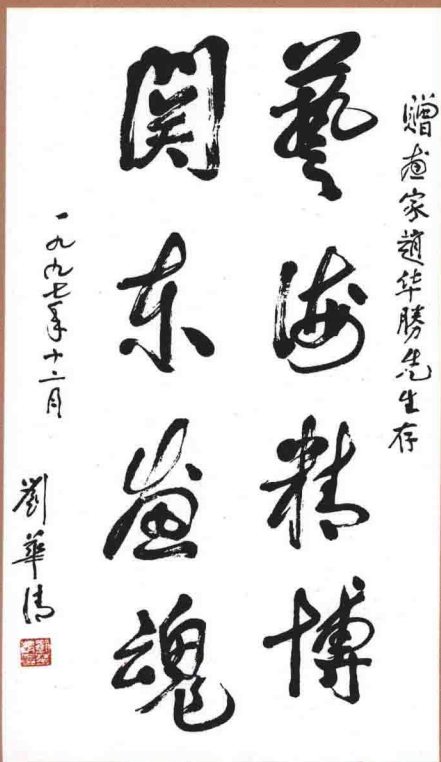 贈画家趙华勝先生存
藝海精博
関东画魂
一九九七年十二月
劉華清